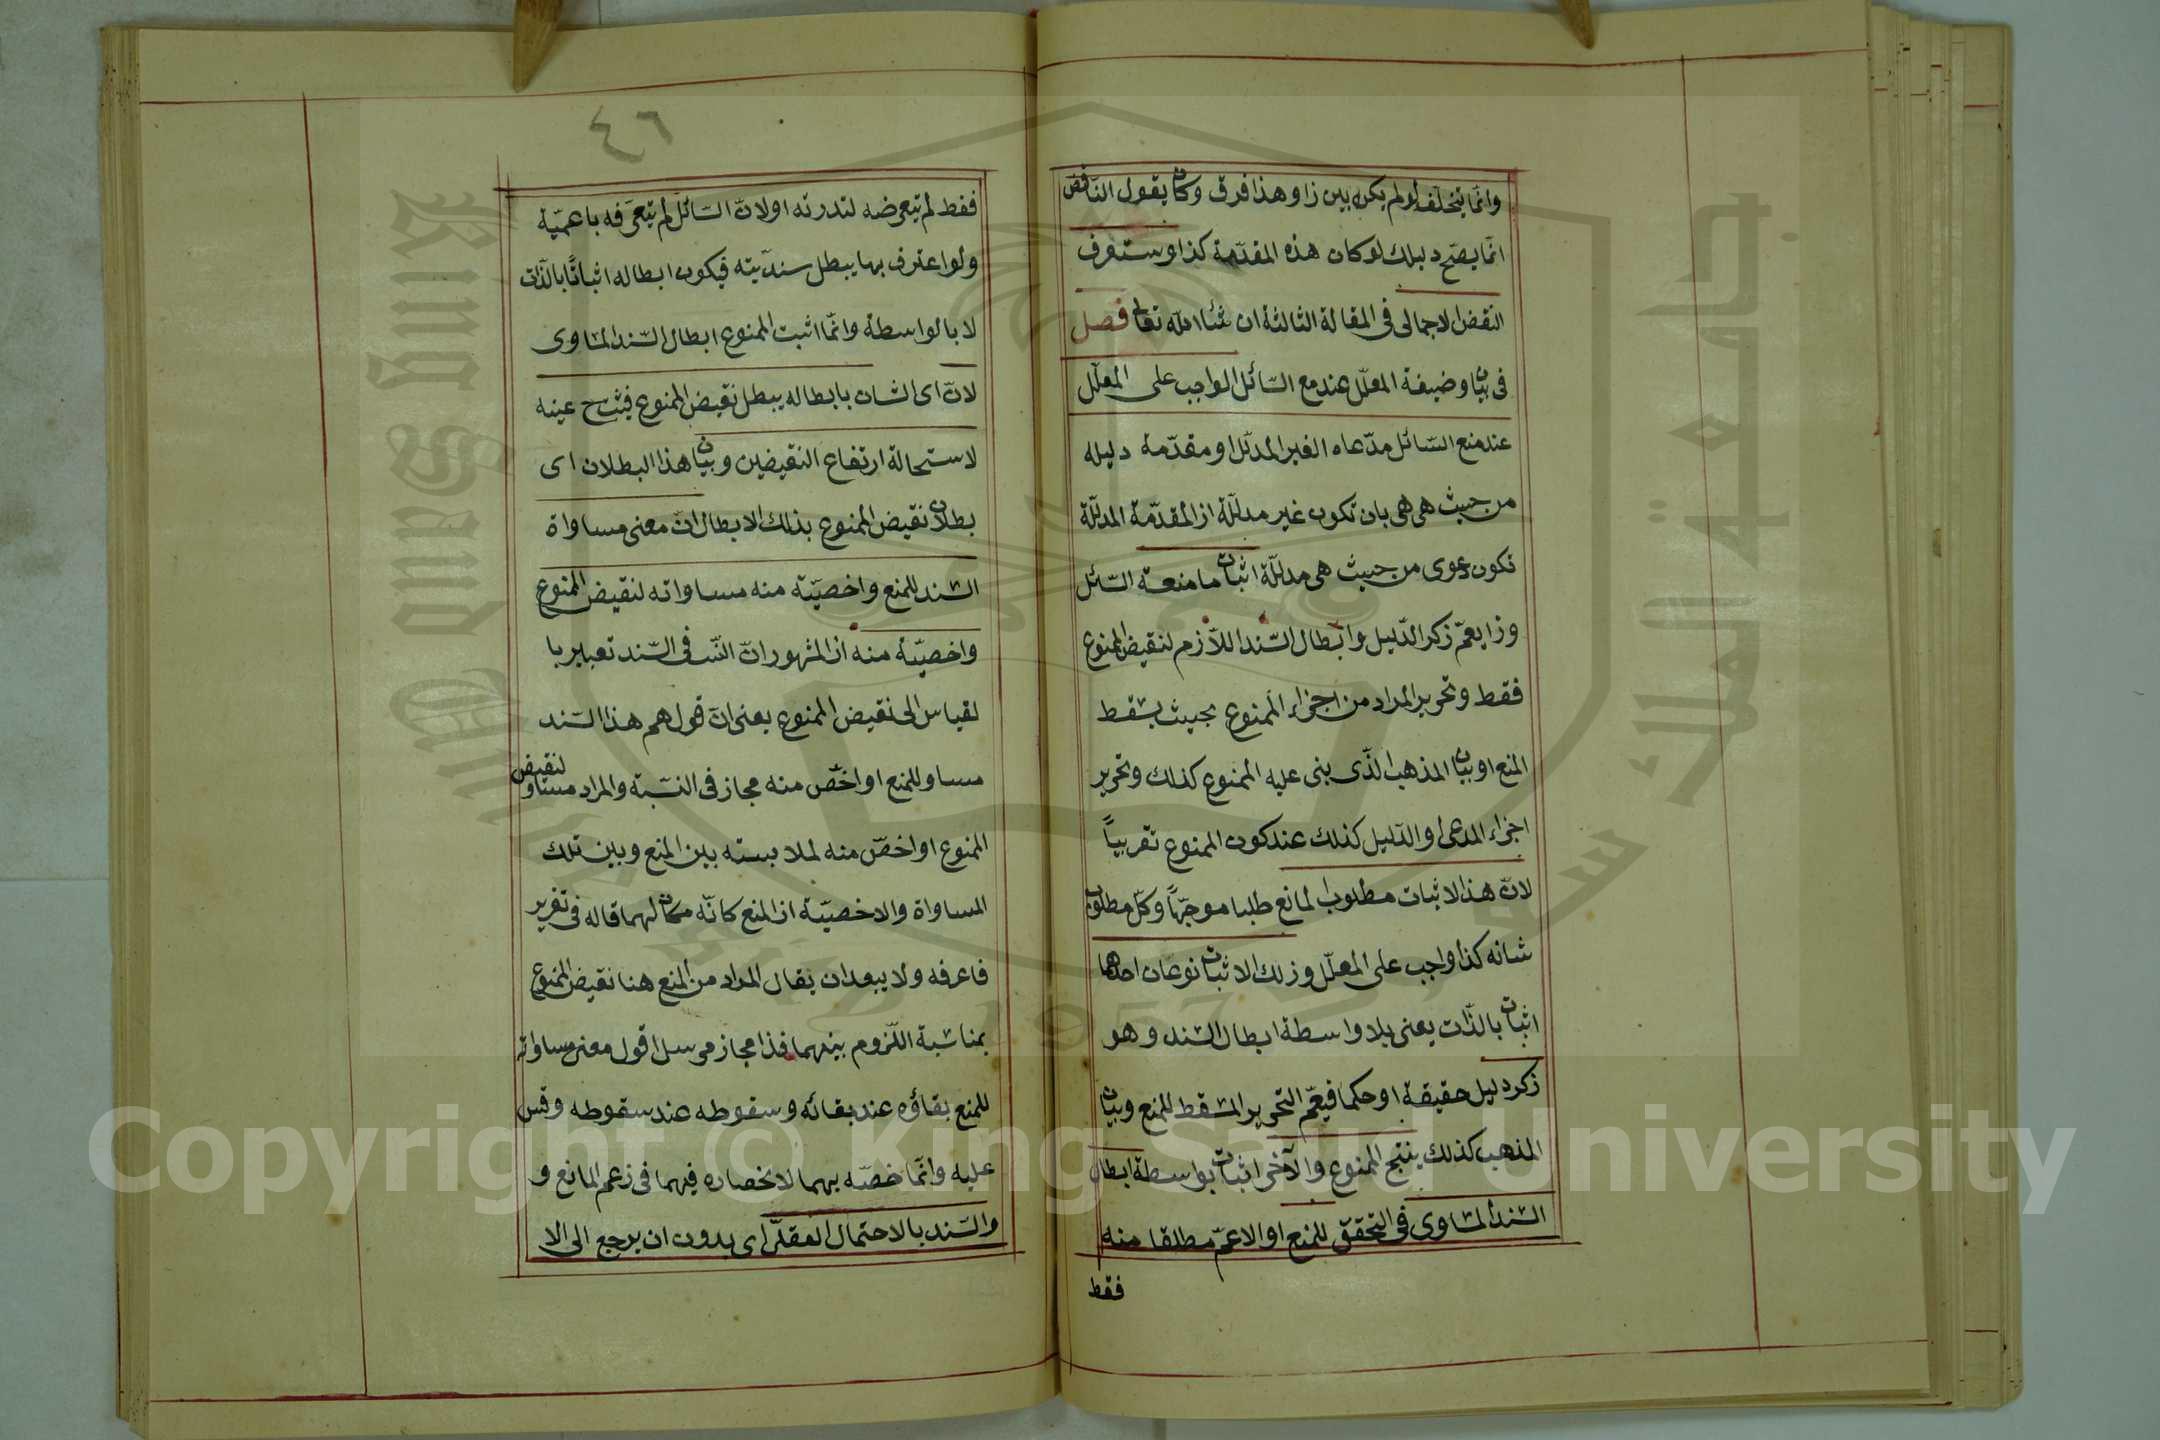 وانما يتخلف لو لم يكن بين ذا وهذا فرق وكان يقول الناقض
انما يصح دليلك لو كان هذه المقدمة كذا وستعرف
النقض الاجمالي في المقالة الثالثة ان شاء الله تعالى فصل
في بيان وضيفة المعلل عند منع السائل الواجب على المعلل
عند منع السائل مدعاه الغير المدلل او مقدمة دليله
من حيث هي هي بان تكون غير مدللة اذ المقدمة المدللة
تكون دعوى من حيث هي مدللة اثبات ما منعه السائل
وذا يعم ذكر الدليل وابطال السند اللازم لنقيض الممنوع
فقط وتحرير المراد من اجزاء الممنوع بحيث يسقط
المنع او بيان المذهب الذي بنى عليه الممنوع كذلك وتحرير
اجزاء المدعى والدليل كذلك عند كون الممنوع تقريبا
لان هذا الاثبات مطلوب المانع طلبا موجها وكل مطلوب
شانه كذا واجب على المعلل وذلك الاثبات نوعان احدهما
اثبات بالذات يعني بلا واسطة ابطال السند وهو
ذكر دليل حقيقة او حكما فيعم التحرير المسقط للمنع وبيان
المذهب كذلك ينتج الممنوع والآخر اثبات بواسطة ابطال
السند المساوي في التحقق للمنع او الاعم مطلقا منه
فقط
٤٦
فقط لم يتعرضه لندرته او لان السائل لم يتعرفه باعمية
ولو اعترف بها يبطل سنديته فيكون ابطاله اثباتا بالذات
لا بالواسطة وانما اثبت الممنوع ابطال السند المساوي
لان اي الشان بابطاله يبطل نقيض الممنوع فيثبت عينه
لاستحالة ارتفاع النقيضين وبيان هذا البطلان اي
بطلان نقيض الممنوع بذلك الابطال ان معنى مساواة
السند للمنع واخصيته منه مساواته لنقيض الممنوع
واخصيته منه اذ المشهور ان النسب في السند تعتبر با
لقياس الى نقيض الممنوع يعني ان قولهم هذا السند
مساو للمنع او اخص منه مجاز في النسبة والمراد مساو لنقيض
الممنوع او اخص منه لملابسته بين المنع وبين تلك
المساواة والاخصية اذ المنع كانه مكان لهما قاله في تقرير
فاعرفه ولا يبعد ان يقال المراد من المنع هنا نقيض الممنوع
بمناسبة اللزوم بينهما فذا مجاز مرسل اقول معنى مساواته
للمنع بقاؤه عند بقائه وسقوطه عند سقوطه وقس
عليه وانما خصه بهما لانحصاره فيهما في زعم المانع و
والسند بالاحتمال العقلي اي بدون ان يرجع الى الا
King Saud University
جامعة الملك سعود
1957
Copyright © King Saud University